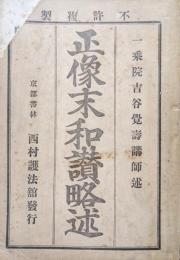 不許複製
一乘院吉谷覺壽講師述
正像末和讃略述
京都書林 西村護法館發行